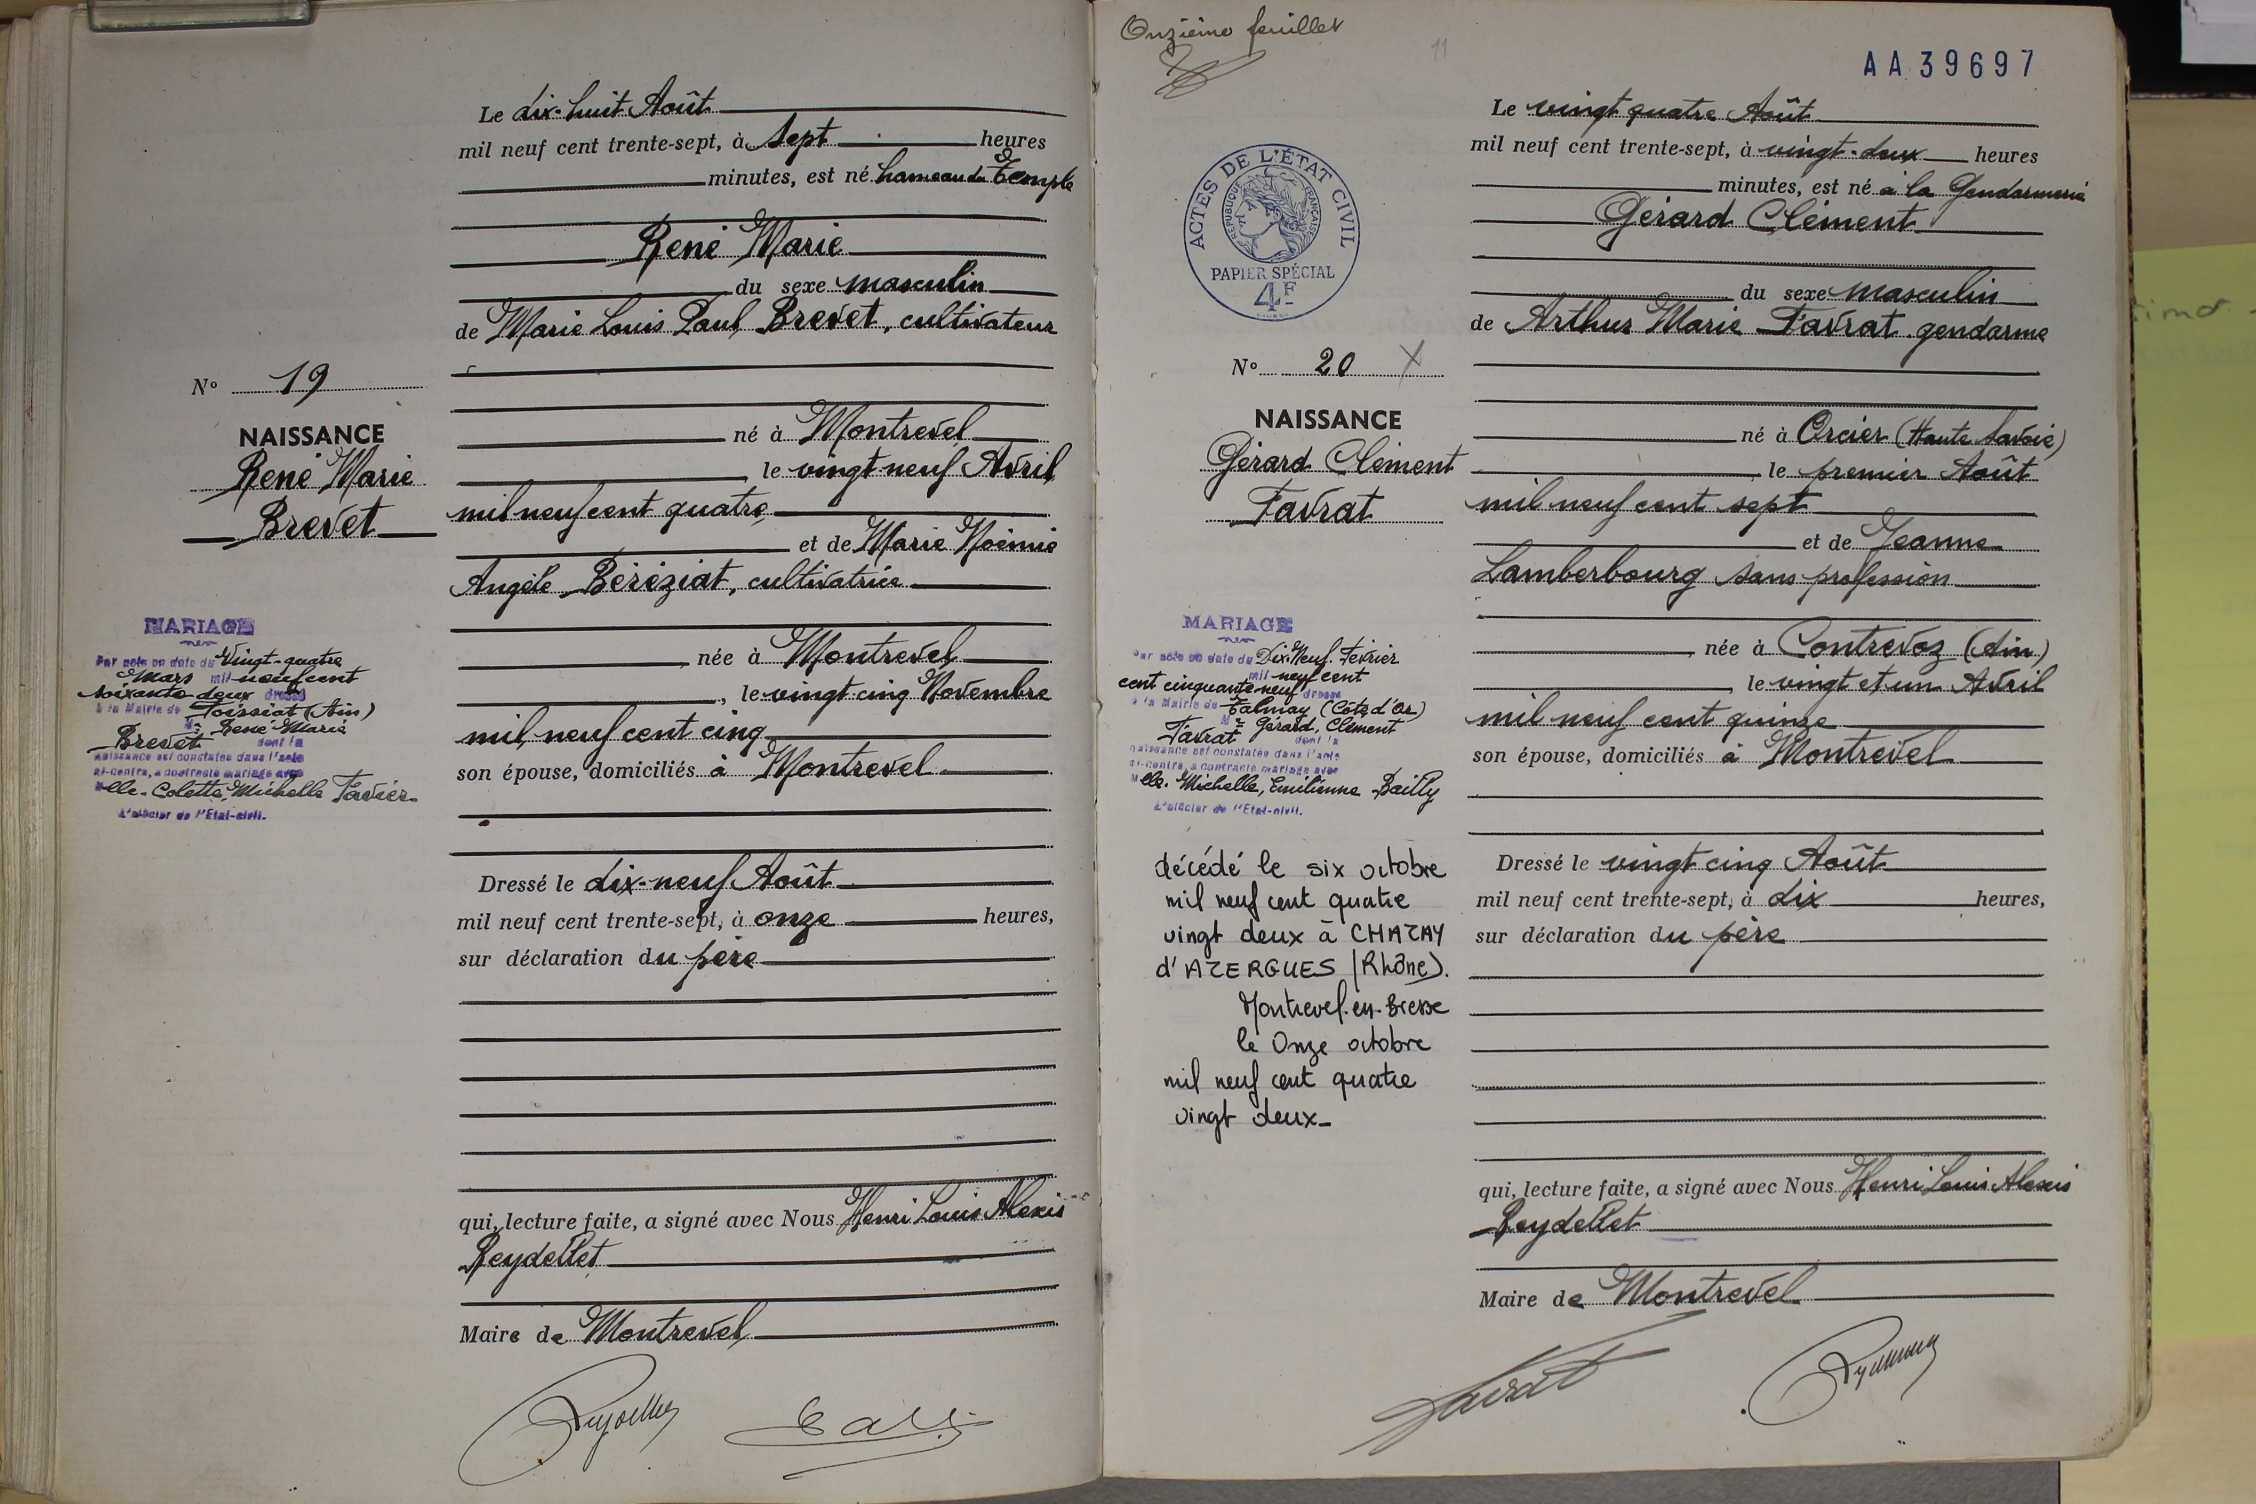 Le dix-huit Août
mil neuf cent trente-sept, à sept heures
minutes, est né hameau du Temple
René Marie
du sexe masculin
de Marie Louis Paul Brevet, cultivateur
né à Montrevel
le vingt neuf Avril
mil neuf cent quatre
et de Marie Noémie
Angèle Béréziat, cultivatrice
née à Montrevel
, le vingt-cinq Novembre
mil neuf cent cinq
son épouse, domiciliés à Montrevel
Dressé le dix-neuf Août
mil neuf cent trente-sept, à onze heures,
sur déclaration du père
qui, lecture faite, a signé avec Nous Henri Louis Alexis
Reydellet
Maire de Montrevel
No 19
NAISSANCE
René Marie
Brevet
MARIAGE
Par acte en date du Vingt-quatre
Mars mil neuf cent
soixante deux dressé
à la Mairie de Foissiat (Ain)
Mr René Marie
Brevet dont la
naissance est constatée dans l'acte
ci-contre, a contracté mariage avec
Melle. Colette, Michelle Favier
L'officier de l'Etat-civil.
Onzième feuillet
11
AA 39697
ACTES DE L'ÉTAT CIVIL
RÉPUBLIQUE FRANÇAISE
PAPIER SPÉCIAL
4F
Le vingt quatre Août
mil neuf cent trente-sept, à vingt-deux heures
minutes, est né à la Gendarmerie
Gérard Clément
du sexe masculin
de Arthur Marie Favrat gendarme
né à Orcier (Haute Savoie)
le premier Août
mil neuf cent sept
et de Jeanne
Lamberbourg sans profession
née à Contrevoz (Ain)
, le vingt et un Avril
mil neuf cent quinze
son épouse, domiciliés à Montrevel
Dressé le vingt cinq Août
mil neuf cent trente-sept, à dix heures,
sur déclaration du père
qui, lecture faite, a signé avec Nous Henri Louis Alexis
Reydellet
Maire de Montrevel
Favrat
No 20 X
NAISSANCE
Gérard Clément
Favrat
MARIAGE
Par acte en date du Dix-Neuf Février
mil neuf cent
cent cinquante neuf dressé
à la Mairie de Talmay (Côte d'Or)
Mr Gérard, Clément
Favrat dont la
naissance est constatée dans l'acte
ci-contre, a contracté mariage avec
Melle. Michelle, Emilienne Bailly
L'officier de l'Etat-civil.
décédé le six octobre
mil neuf cent quatre
vingt deux à CHAZAY
d'AZERGUES (Rhône).
Montrevel-en-Bresse
le Onze octobre
mil neuf cent quatre
vingt deux_